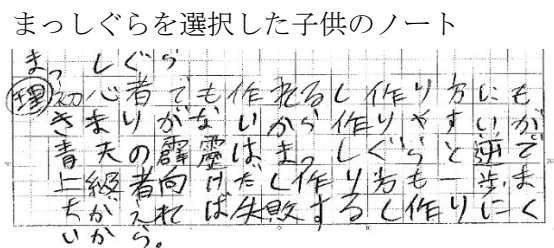 まっしぐらを選択した子供のノート
まっしぐら
理 初心者でも作れるし作り方にも
きまりがないから作りやすいが
青天の霹靂はまっしぐらと逆で
上級者向けだし作り方も一歩ま
ちがえれば失敗するし作りにく
いから。